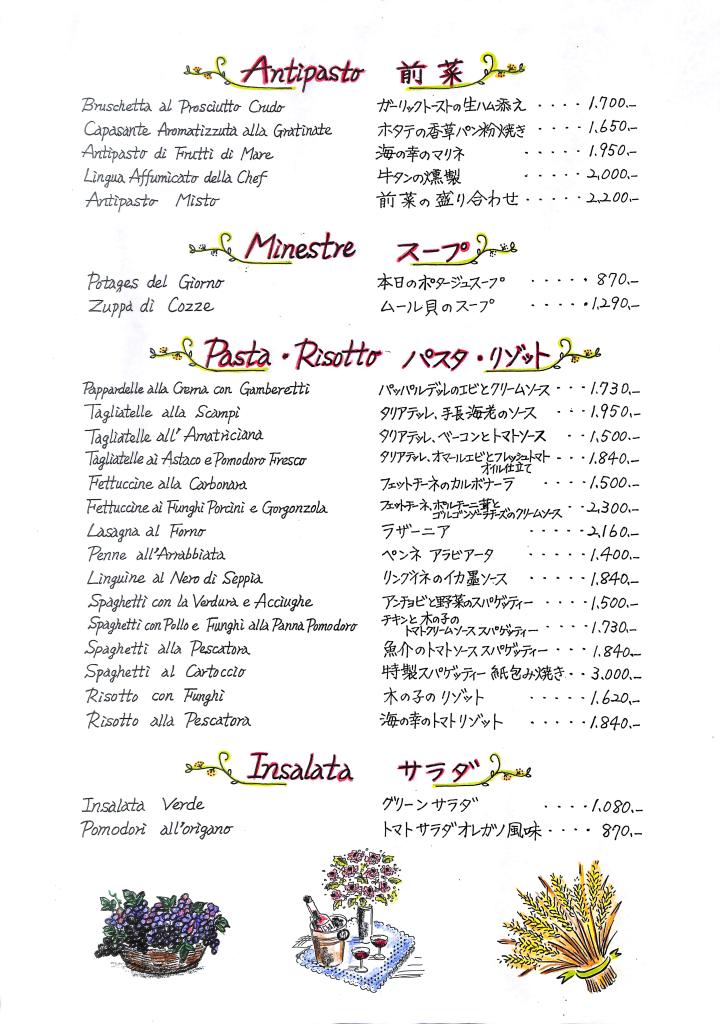 Antipasto 前菜
Bruschetta al Prosciutto Crudo ガーリックトーストの生ハム添え ・・・・ 1.700.-
Capasante Aromatizzuta alla Gratinate ホタテの香草パン粉焼き ・・・・ 1.650.-
Antipasto di Frutti di Mare 海の幸のマリネ ・・・・ 1.950.-
Lingua Affumicato della Chef 牛タンの燻製 ・・・・ 2,000.-
Antipasto Misto 前菜の盛り合わせ ・・・・ 2,200.-
Minestre スープ
Potages del Giorno 本日のポタージュスープ ・・・・・ 870.-
Zuppa di Cozze ムール貝のスープ ・・・・・ 1,290.-
Pasta・Risotto パスタ・リゾット
Pappardelle alla Crema con Gamberetti パッパルデッレのエビとクリームソース ・・・ 1.730.-
Tagliatelle alla Scampi タリアテッレ、手長海老のソース ・・・ 1.950.-
Tagliatelle all'Amatriciana タリアテッレ、ベーコンとトマトソース ・・ 1,500.-
Tagliatelle ai Astaco e Pomodoro Fresco タリアテッレ、オマールエビとフレッシュトマト ・・・ 1.840.-
オイル仕立て
Fettuccine alla Carbonara フェットチーネのカルボナーラ ・・・・ 1.500.-
Fettuccine ai Funghi Porcini e Gorgonzola フェットチーネ、ポルチーニ茸と ・・ 2,300.-
ゴルゴンゾーラチーズのクリームソース
Lasagna al Forno ラザーニア ・・・・・ 2,160.-
Penne all'Arrabbiata ペンネ アラビアータ ・・・・ 1.400.-
Linguine al Nero di Seppia リングイネのイカ墨ソース ・・・・ 1.840.-
Spaghetti con la Verdura e Acciughe アンチョビと野菜のスパゲッティー ・・・・ 1,500.-
Spaghetti con Pollo e Funghi alla Panna Pomodoro チキンと木の子の ・・・・ 1.730.-
トマトクリームソース スパゲッティー
Spaghetti alla Pescatora 魚介のトマトソース スパゲッティー ・・・ 1.840.-
Spaghetti al Cartoccio 特製スパゲッティー 紙包み焼き ・・ 3,000.-
Risotto con Funghi 木の子の リゾット ・・・・・ 1.620.-
Risotto alla Pescatora 海の幸のトマトリゾット ・・・・・ 1.840.-
Insalata サラダ
Insalata Verde グリーン サラダ ・・・・ 1.080.-
Pomodori all'origano トマトサラダオレガノ風味 ・・・・ 870.-